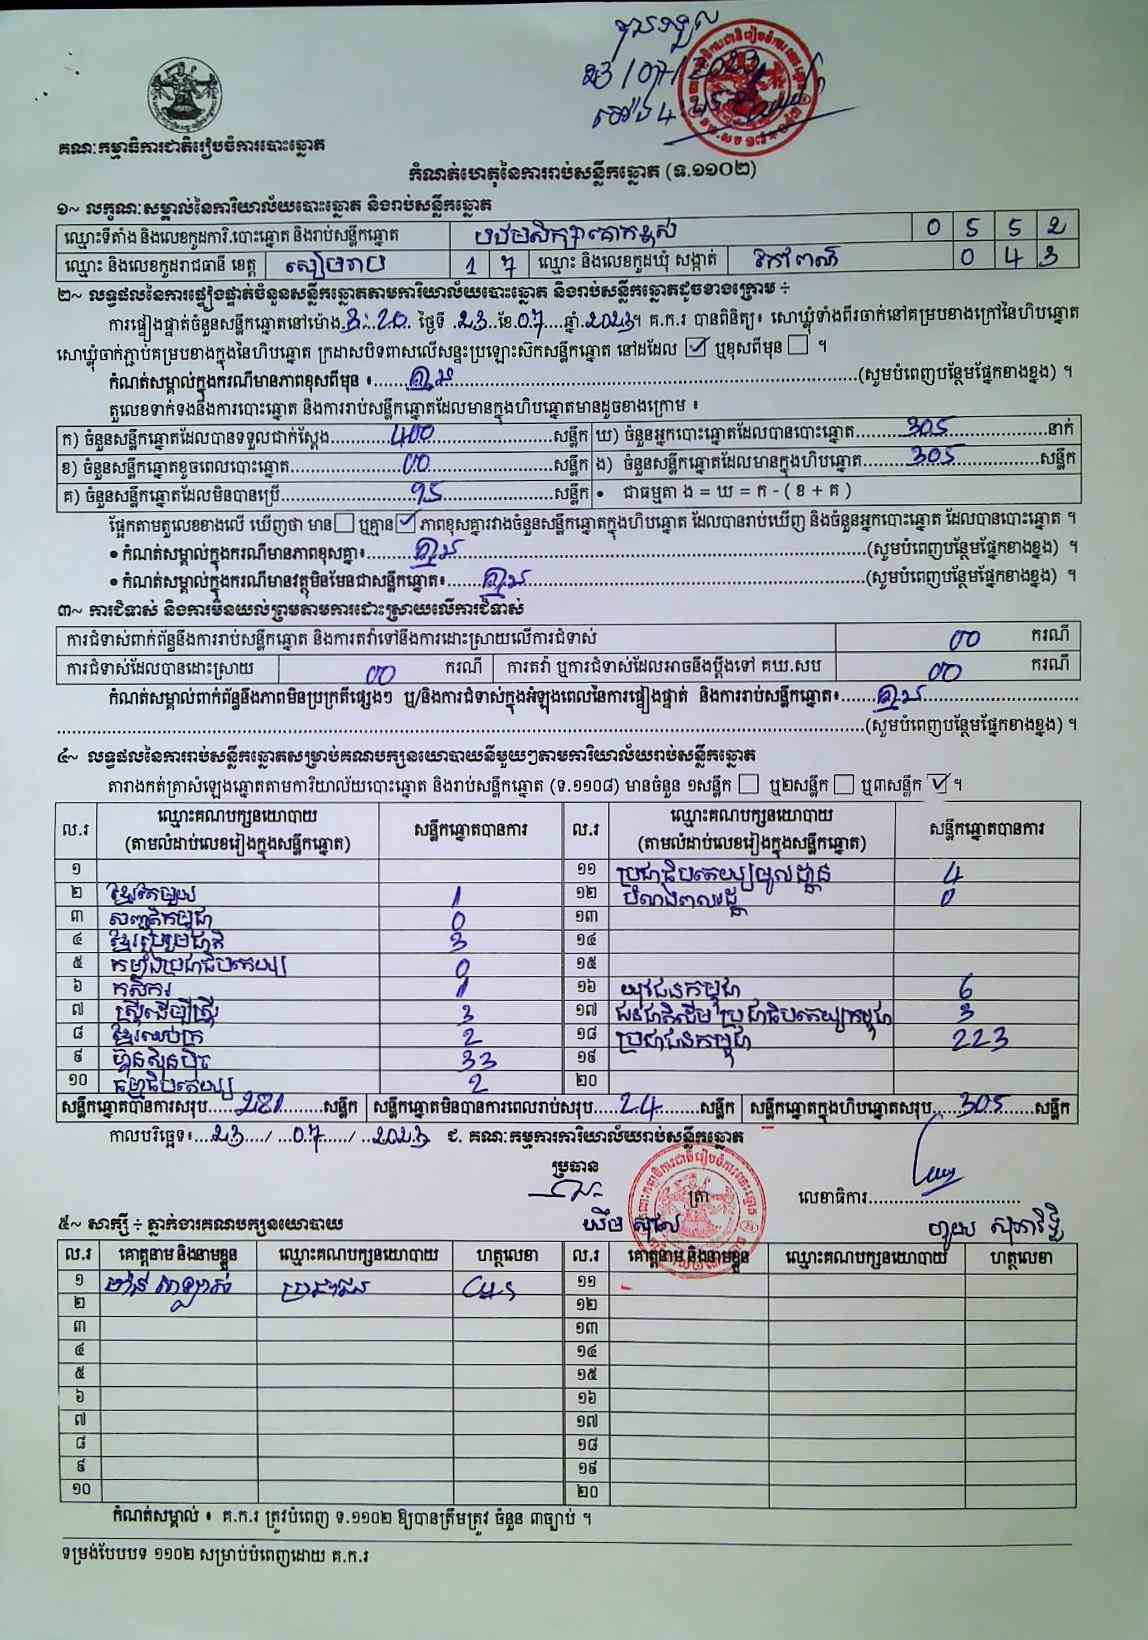 ជូនចូល
23/07/2023
ម៉ោង 4:45
គណៈកម្មាធិការជាតិរៀបចំការបោះឆ្នោត
កំណត់ហេតុនៃការរាប់សន្លឹកឆ្នោត (ទ.១១០២)
១~ លក្ខណៈសម្គាល់នៃការិយាល័យបោះឆ្នោត និងរាប់សន្លឹកឆ្នោត
ឈ្មោះទីតាំង និងលេខកូដការិ.បោះឆ្នោត និងរាប់សន្លឹកឆ្នោត បឋមសិក្សាគោកខ្ពស់ 0 5 5 2
ឈ្មោះ និងលេខកូដរាជធានី ខេត្ត សៀមរាប 1 7 ឈ្មោះ និងលេខកូដឃុំ សង្កាត់ 0 4 3
២~ លទ្ធផលនៃការផ្ទៀងផ្ទាត់ចំនួនសន្លឹកឆ្នោតតាមការិយាល័យបោះឆ្នោត និងរាប់សន្លឹកឆ្នោតដូចខាងក្រោម ÷
ការផ្ទៀងផ្ទាត់ចំនួនសន្លឹកឆ្នោតនៅម៉ោង 3:20 ថ្ងៃទី 23 ខែ 07 ឆ្នាំ 2023។ គ.ក.រ បានពិនិត្យ៖ សោឃ្លុំទាំងពីរចាក់នៅគម្របខាងក្រៅនៃហិបឆ្នោត
សោឃ្លុំចាក់ភ្ជាប់គម្របខាងក្នុងនៃហិបឆ្នោត ក្រដាសបិទពាសលើសន្ទះប្រឡោះស៊កសន្លឹកឆ្នោត នៅដដែល ☑ ឬខុសពីមុន ☐ ។
កំណត់សម្គាល់ក្នុងករណីមានភាពខុសពីមុន ៖ គ្មាន (សូមបំពេញបន្ថែមផ្នែកខាងខ្នង) ។
តួលេខទាក់ទងនឹងការបោះឆ្នោត និងការរាប់សន្លឹកឆ្នោតដែលមានក្នុងហិបឆ្នោតមានដូចខាងក្រោម ៖
ក) ចំនួនសន្លឹកឆ្នោតដែលបានទទួលជាក់ស្តែង 400 សន្លឹក ឃ) ចំនួនអ្នកបោះឆ្នោតដែលបានបោះឆ្នោត 305 នាក់
ខ) ចំនួនសន្លឹកឆ្នោតខូចពេលបោះឆ្នោត 00 សន្លឹក ង) ចំនួនសន្លឹកឆ្នោតដែលមានក្នុងហិបឆ្នោត 305 សន្លឹក
គ) ចំនួនសន្លឹកឆ្នោតដែលមិនបានប្រើ 95 សន្លឹក • ជាធម្មតា ង = ឃ = ក - ( ខ + គ )
ផ្អែកតាមតួលេខខាងលើ ឃើញថា មាន ☐ ឬគ្មាន ☑ ភាពខុសគ្នារវាងចំនួនសន្លឹកឆ្នោតក្នុងហិបឆ្នោត ដែលបានរាប់ឃើញ និងចំនួនអ្នកបោះឆ្នោត ដែលបានបោះឆ្នោត ។
• កំណត់សម្គាល់ក្នុងករណីមានភាពខុសគ្នា៖ គ្មាន (សូមបំពេញបន្ថែមផ្នែកខាងខ្នង) ។
• កំណត់សម្គាល់ក្នុងករណីមានវត្ថុមិនមែនជាសន្លឹកឆ្នោត៖ គ្មាន (សូមបំពេញបន្ថែមផ្នែកខាងខ្នង) ។
៣~ ការជំទាស់ និងការមិនយល់ព្រមតាមការដោះស្រាយលើការជំទាស់
ការជំទាស់ពាក់ព័ន្ធនឹងការរាប់សន្លឹកឆ្នោត និងការតវ៉ាទៅនឹងការដោះស្រាយលើការជំទាស់ 00 ករណី
ការជំទាស់ដែលបានដោះស្រាយ 00 ករណី ការតវ៉ា ឬការជំទាស់ដែលអាចនឹងប្តឹងទៅ គឃ.សប 00 ករណី
កំណត់សម្គាល់ពាក់ព័ន្ធនឹងភាពមិនប្រក្រតីផ្សេងៗ ឬ/និងការជំទាស់ក្នុងអំឡុងពេលនៃការផ្ទៀងផ្ទាត់ និងការរាប់សន្លឹកឆ្នោត៖ គ្មាន
(សូមបំពេញបន្ថែមផ្នែកខាងខ្នង) ។
៤~ លទ្ធផលនៃការរាប់សន្លឹកឆ្នោតសម្រាប់គណបក្សនយោបាយនីមួយៗតាមការិយាល័យរាប់សន្លឹកឆ្នោត
តារាងកត់ត្រាសំឡេងឆ្នោតតាមការិយាល័យបោះឆ្នោត និងរាប់សន្លឹកឆ្នោត (ទ.១១០៨) មានចំនួន ១សន្លឹក ☐ ឬ២សន្លឹក ☐ ឬ៣សន្លឹក ☑ ។
ល.រ ឈ្មោះគណបក្សនយោបាយ (តាមលំដាប់លេខរៀងក្នុងសន្លឹកឆ្នោត) សន្លឹកឆ្នោតបានការ ល.រ ឈ្មោះគណបក្សនយោបាយ (តាមលំដាប់លេខរៀងក្នុងសន្លឹកឆ្នោត) សន្លឹកឆ្នោតបានការ
១ ១១ ប្រជាធិបតេយ្យមូលដ្ឋាន 4
២ ខ្មែរតែមួយ 1 ១២ បំណងពលរដ្ឋ 0
៣ សញ្ជាតិកម្ពុជា 0 ១៣
៤ ខ្មែររួបរួមជាតិ 3 ១៤
៥ កម្លាំងប្រជាធិបតេយ្យ 0 ១៥
៦ កសិករ 1 ១៦ យុវជនកម្ពុជា 6
៧ ស្ត្រីដើម្បីស្ត្រី 3 ១៧ ជនជាតិដើម ប្រជាធិបតេយ្យកម្ពុជា 3
៨ ខ្មែរឈប់ក្រ 2 ១៨ ប្រជាជនកម្ពុជា 223
៩ ហ៊្វុនស៊ិនប៉ិច 33 ១៩
១០ ធម្មាធិបតេយ្យ 2 ២០
សន្លឹកឆ្នោតបានការសរុប 281 សន្លឹក សន្លឹកឆ្នោតមិនបានការពេលរាប់សរុប 24 សន្លឹក សន្លឹកឆ្នោតក្នុងហិបឆ្នោតសរុប 305 សន្លឹក
កាលបរិច្ឆេទ៖ 23 / 07 / 2023 ជ. គណៈកម្មការការិយាល័យរាប់សន្លឹកឆ្នោត
ប្រធាន ត្រា លេខាធិការ
៥~ សាក្សី ÷ ភ្នាក់ងារគណបក្សនយោបាយ
ល.រ គោត្តនាម និងនាមខ្លួន ឈ្មោះគណបក្សនយោបាយ ហត្ថលេខា ល.រ គោត្តនាម និងនាមខ្លួន ឈ្មោះគណបក្សនយោបាយ ហត្ថលេខា
១ ប្រជាជន ១១
២ ១២
៣ ១៣
៤ ១៤
៥ ១៥
៦ ១៦
៧ ១៧
៨ ១៨
៩ ១៩
១០ ២០
កំណត់សម្គាល់ ៖ គ.ក.រ ត្រូវបំពេញ ទ.១១០២ ឱ្យបានត្រឹមត្រូវ ចំនួន ៣ច្បាប់ ។
ទម្រង់បែបបទ ១១០២ សម្រាប់បំពេញដោយ គ.ក.រ